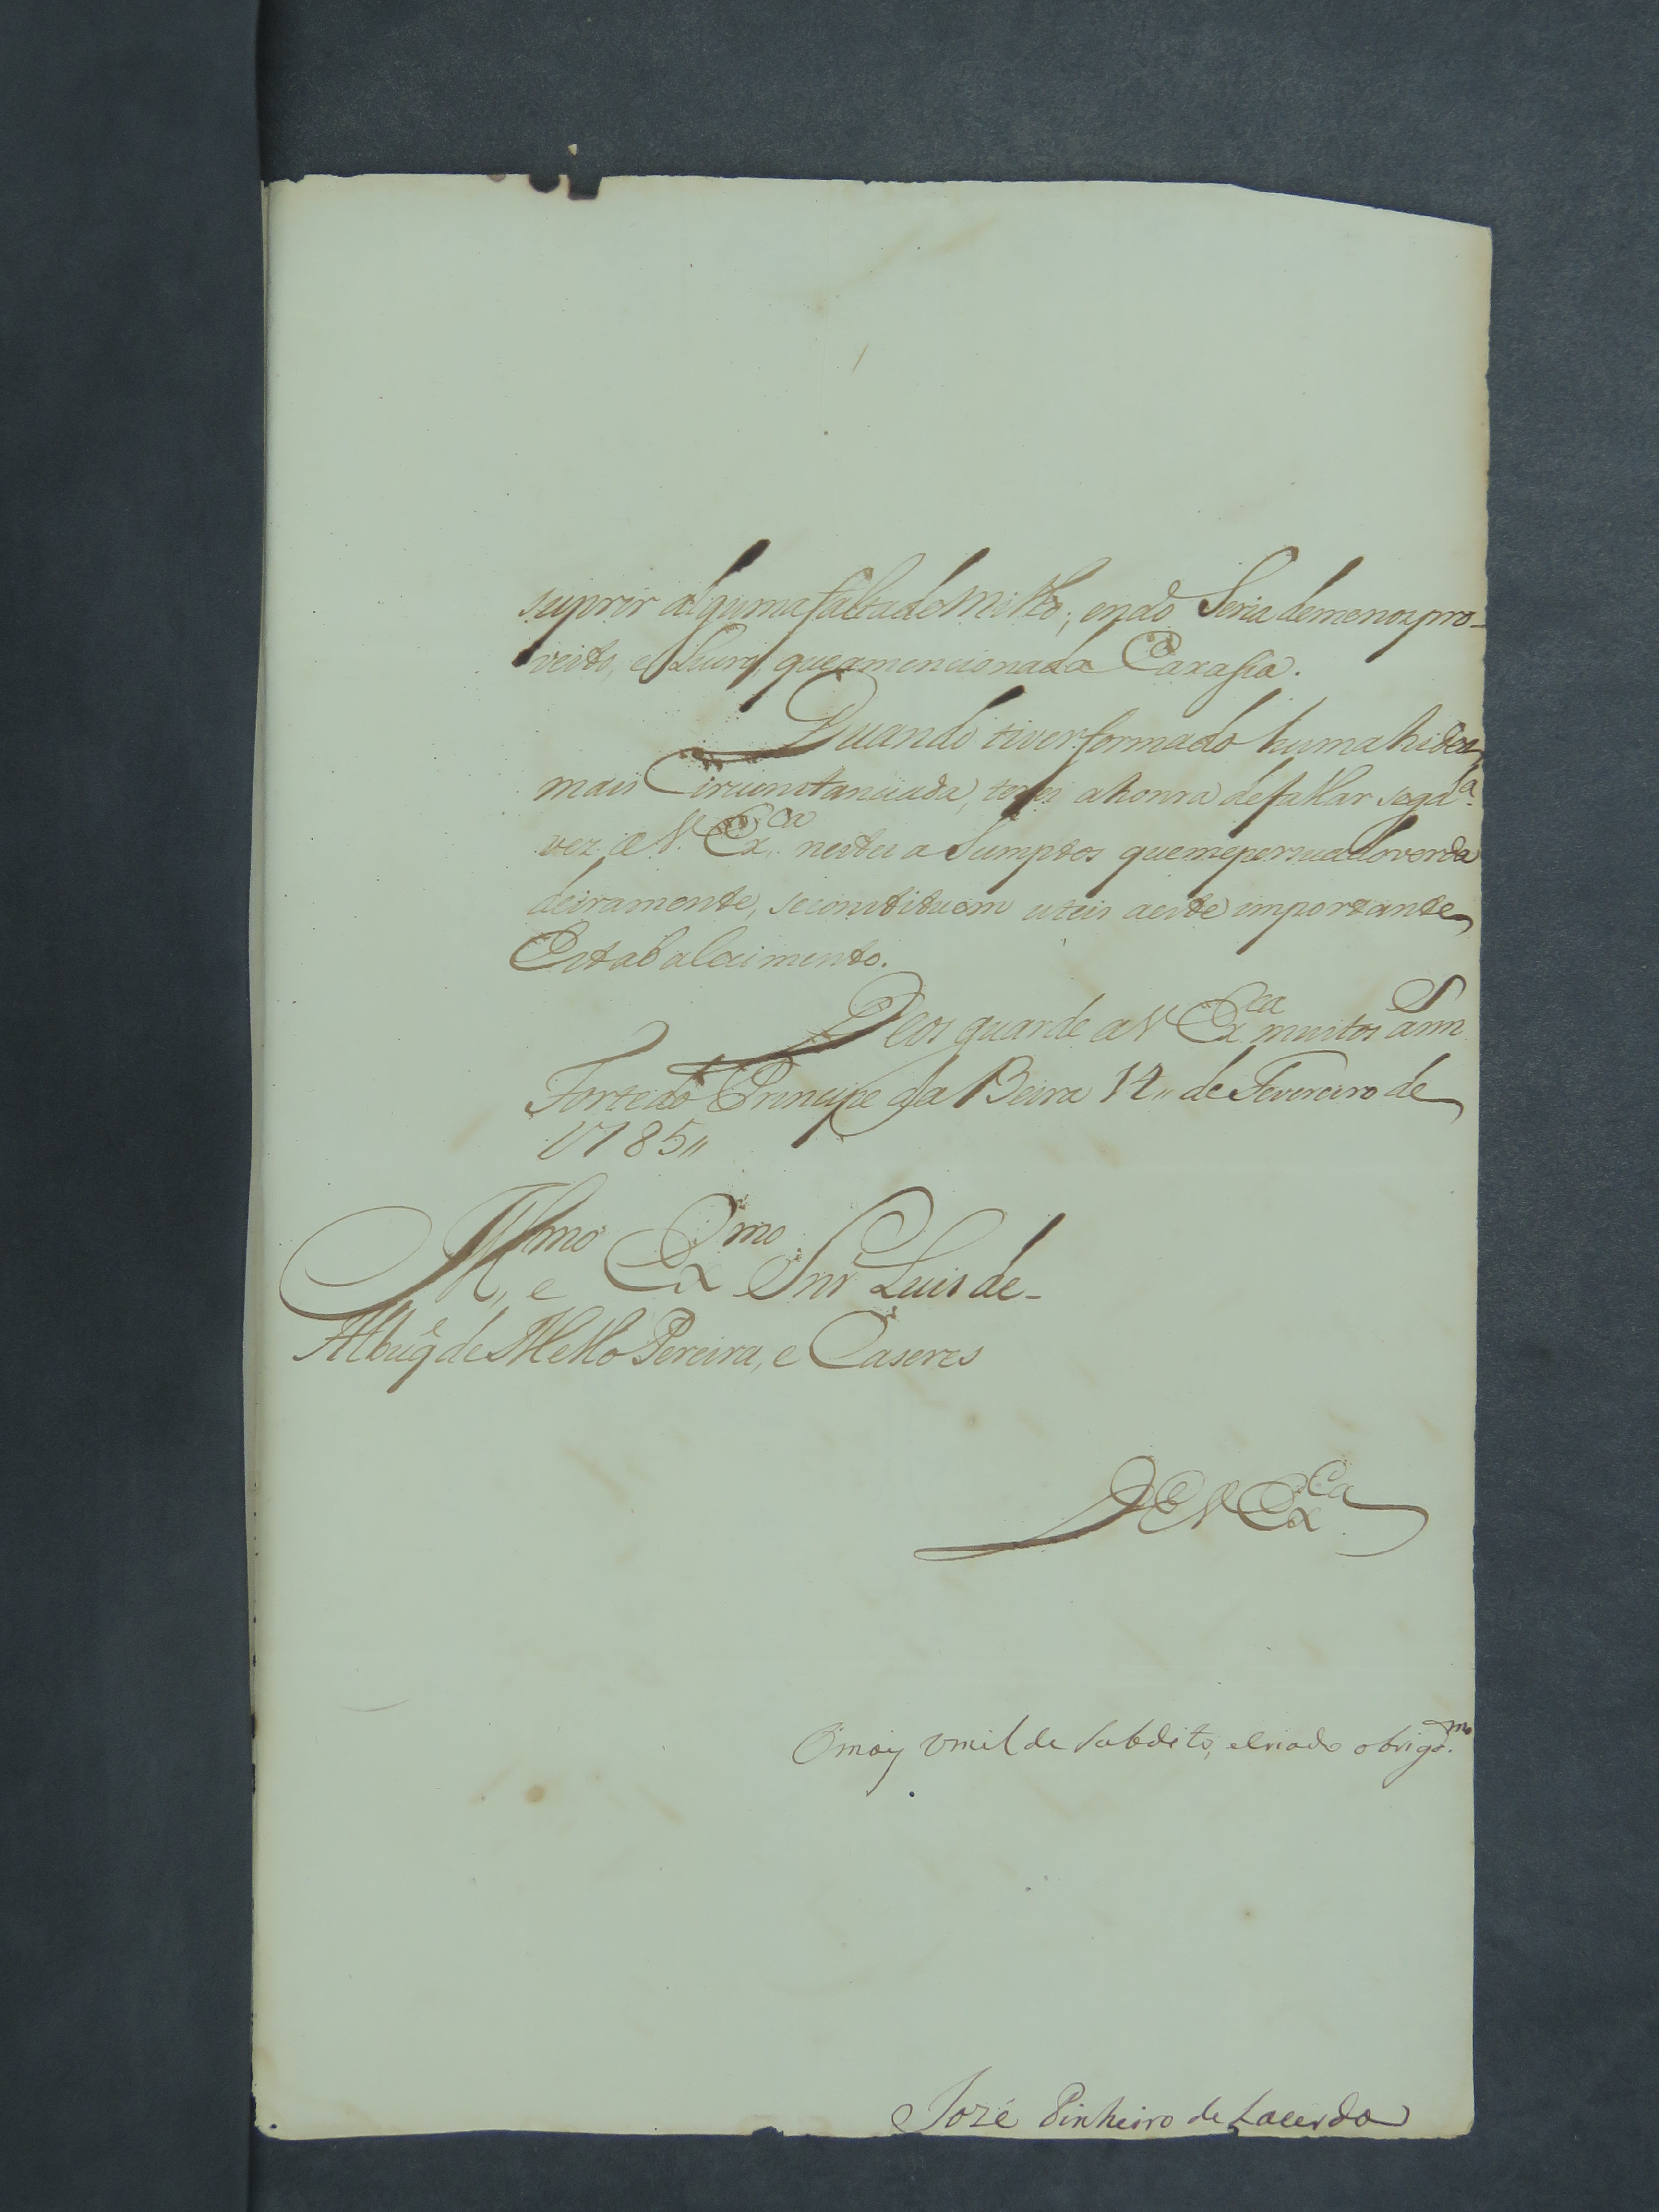 suprir alguma falta de Milho; e não Seria de menos pro-
veito, e Lucro, que a mencionada Caxassa.
Quando tiver formado huma hidea
mais Circunstanciada, terei a honra de fallar segd.ª
vez a V. Ex.ca nestes asumptos que me persuado verda
deiramente, se constituem uteis a este importante
Estabalecimento.
Deos guarde a V Ex.ca muitos ann
Forte do Principe da Beira 14,, de Fevereiro de
1785,,
Illmo, e Exmo Snr Luis de
Albuq.e de Mello Pereira, e Caseres
De V Ex.ca
O maiz Vmilde Subdito, e criado obrigd.mo
Jozé Pinheiro de Lacerda